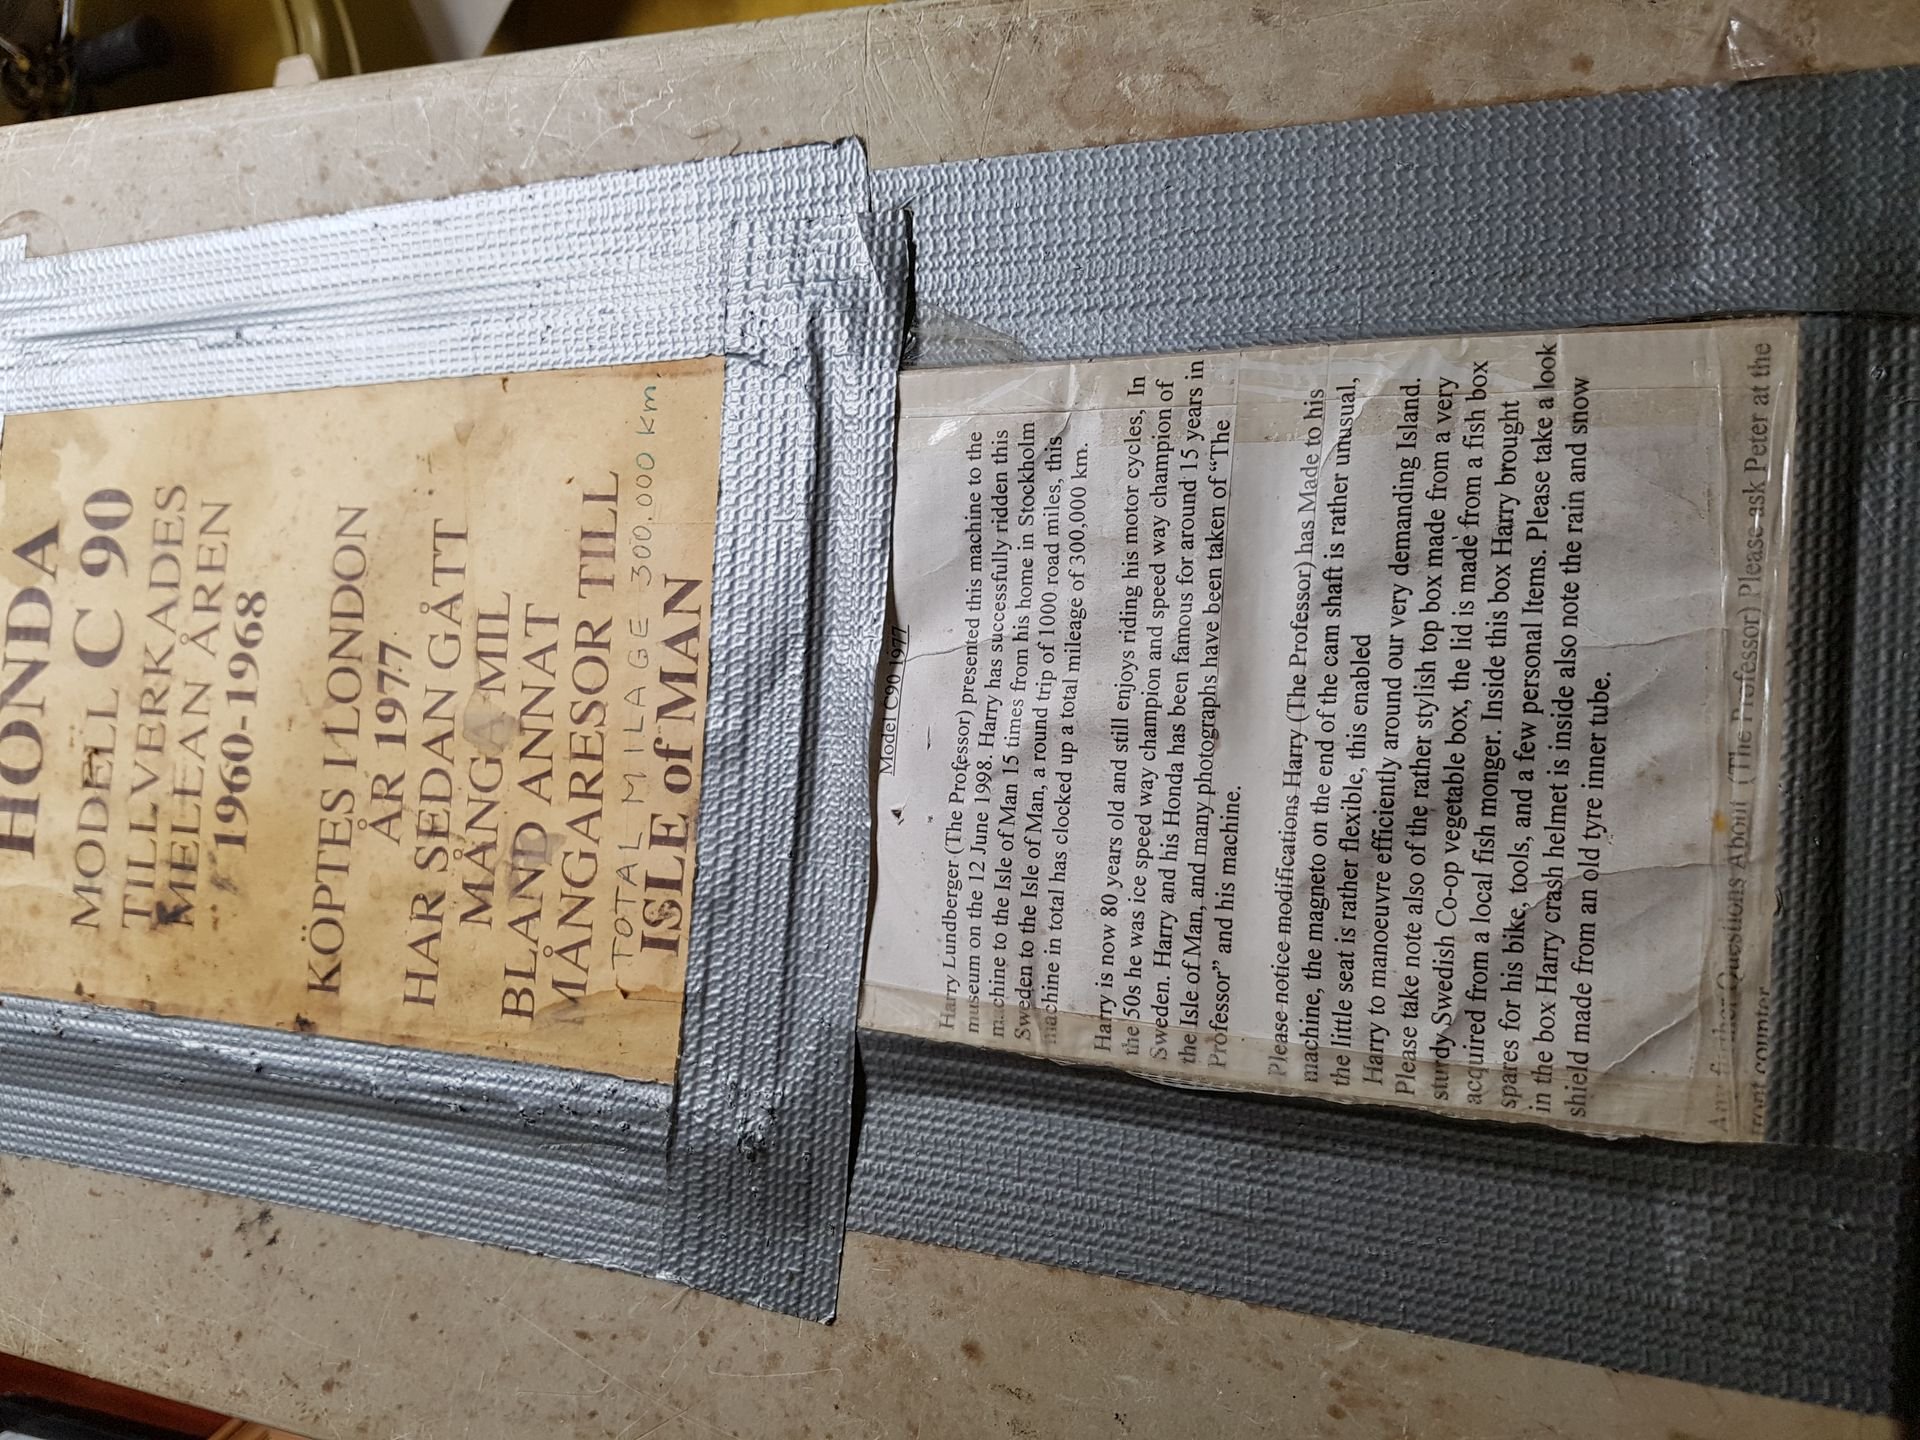 HONDA
MODELL C 90
TILLVERKADES
MELLAN ÅREN
1960-1968
KÖPTES I LONDON
ÅR 1977
HAR SEDAN GÅTT
MÅNGA MIL
BLAND ANNAT
MÅNGARESOR TILL
TOTAL MILAGE 300,000 km
ISLE of MAN
Model C90 1977
Harry Lundberger (The Professor) presented this machine to the
museum on the 12 June 1998. Harry has successfully ridden this
machine to the Isle of Man 15 times from his home in Stockholm
Sweden to the Isle of Man, a round trip of 1000 road miles, this
machine in total has clocked up a total mileage of 300,000 km.
Harry is now 80 years old and still enjoys riding his motor cycles, In
the 50s he was ice speed way champion and speed way champion of
Sweden. Harry and his Honda has been famous for around 15 years in
the Isle of Man, and many photographs have been taken of “The
Professor” and his machine.
Please notice modifications Harry (The Professor) has Made to his
machine, the magneto on the end of the cam shaft is rather unusual,
the little seat is rather flexible, this enabled
Harry to manoeuvre efficiently around our very demanding Island.
Please take note also of the rather stylish top box made from a very
sturdy Swedish Co-op vegetable box, the lid is made from a fish box
acquired from a local fish monger. Inside this box Harry brought
spares for his bike, tools, and a few personal Items. Please take a look
in the box Harry crash helmet is inside also note the rain and snow
shield made from an old tyre inner tube.
Any further Questions About (The Professor) Please ask Peter at the
front counter